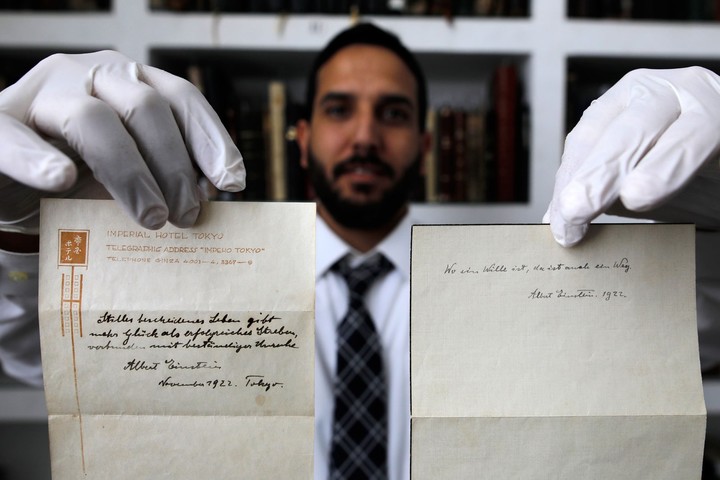 IMPERIAL HOTEL TOKYO
TELEGRAPHIC ADDRESS "IMPEHO TOKYO"
TELEPHONE GINZA
ホテル
Stilles bescheidenes Leben gibt
mehr Glück als erfolgreiches Streben,
verbunden mit beständiger Unruhe
Albert Einstein
November 1922. Tokyo.
Wo ein Wille ist, da ist auch ein Weg.
Albert Einstein. 1922.